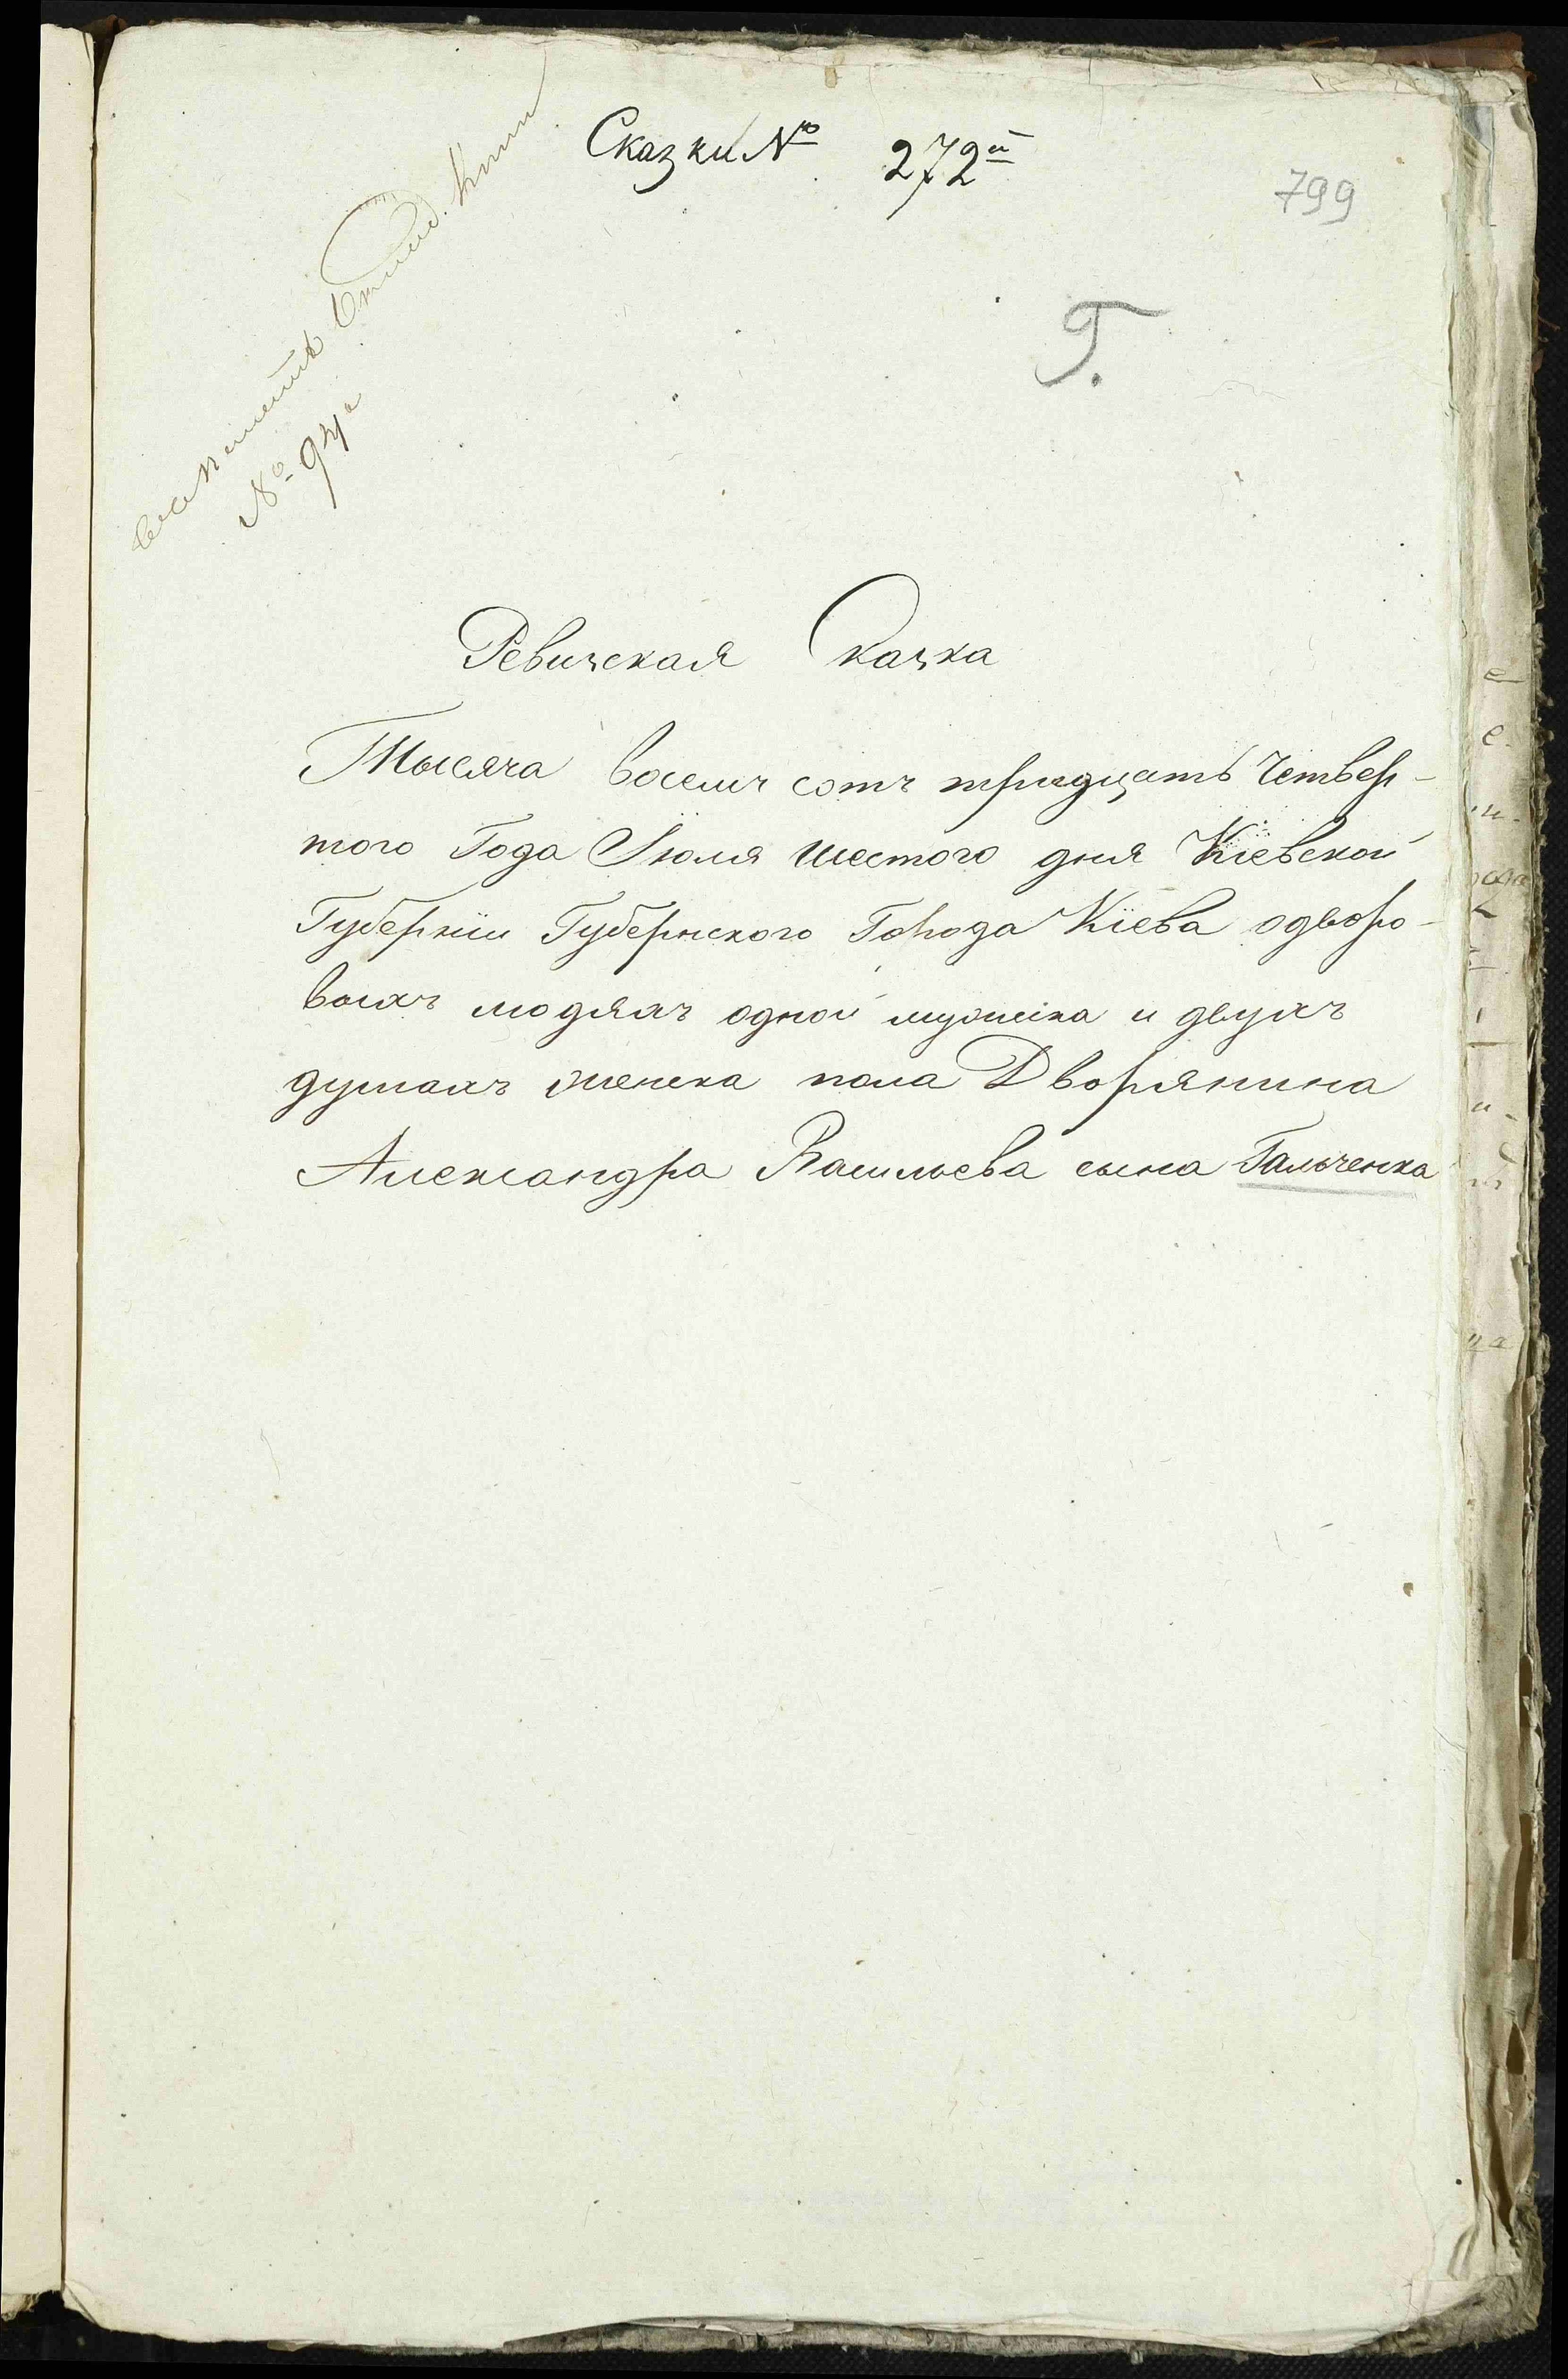 Сказки № 272й
799
Г.
№ 94
Ревизская Сказка
Тысяча восемъ сотъ тридцать Четвер-
того Года Іюля шестого дня Кіевской
Губерніи Губернского Города Кіева одворо-
выхъ людяхъ одной мужеска и двухъ
душахъ женска пола Дворянина
Александра Васильева сына Гальченка